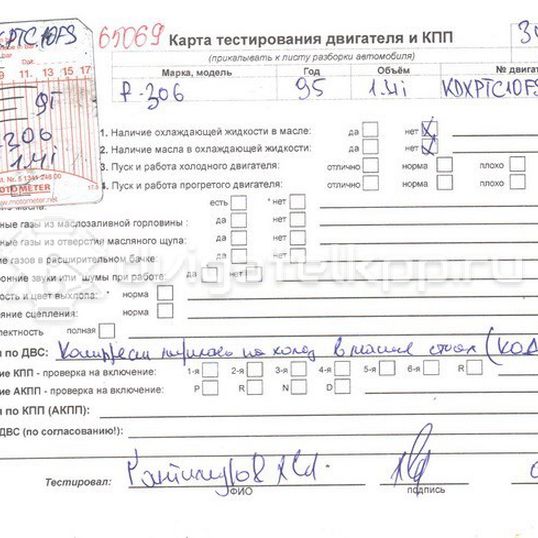 KDXPTC10FS
65069
Карта тестирования двигателя и КПП
(прикалывать к листу разборки автомобиля)
Марка, модель
Год
Объём
№ двигат
P-306
95
1.4i
KDXPTC10FS
9 11 13 15 17
9Т
306
1.4i
MOTOMETER
www.motometer.net
1. Наличие охлаждающей жидкости в масле: да нет
2. Наличие масла в охлаждающей жидкости: да нет
3. Пуск и работа холодного двигателя: отлично норма плохо
4. Пуск и работа прогретого двигателя: отлично норма плохо
есть * нет
ные газы из маслозаливной горловины : да нет
ные газы из отверстия масляного щупа: да нет
ие газов в расширительном бачке: да нет
ронние звуки или шумы при работе: да нет
ость и цвет выхлопа: * норма
яние сцепления: * норма
лектность полная
по ДВС:
ие КПП - проверка на включение: 1-я 2-я 3-я 4-я 5-я 6-я R
ие АКПП - проверка на включение: P R N D
по КПП (АКПП):
ДВС (по согласованию!):
Тестировал:
ФИО
подпись
dvigatelkpp.ru